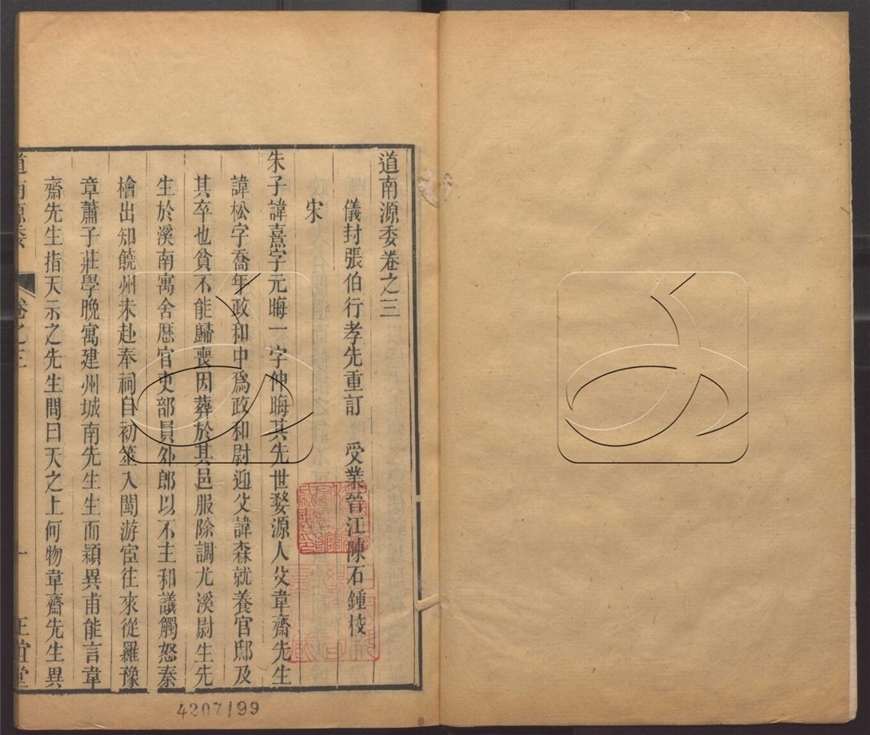 道南源委卷之三
儀封張伯行孝先重訂 受業晉江陳石鍾校
宋
朱子諱熹字元晦一字仲晦其先世婺源人父韋齋先生
諱松字喬年政和中爲政和尉迎父諱森就養官邸及
其卒也貧不能歸喪因葬於其邑服除調尤溪尉生先
生於溪南寓舍歷官吏部員外郎以不主和議觸怒秦
檜出知饒州未赴奉祠自初筮入閩游宦往來從羅豫
章蕭子莊學晚寓建州城南先生生而穎異甫能言韋
齋先生指天示之先生問曰天之上何物韋齋先生異
道南源委 卷之三 一 正誼堂
4207/99